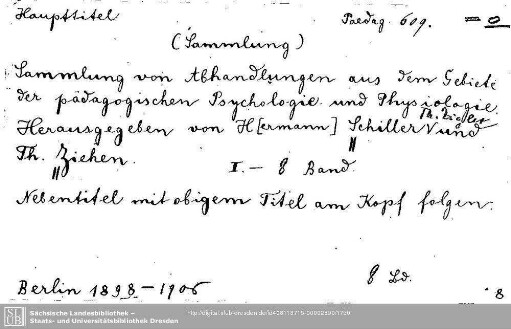 Haupttitel Paedag. 609. = 0
(Sammlung)
Sammlung von Abhandlungen aus dem Gebiete
der pädagogischen Psychologie und Physiologie.
Th. Ziegler
Herausgegeben von H[ermann] Schiller und
Th. Ziehen. I. - 8 Band.
Nebentitel mit obigem Titel am Kopf folgen.
8 Bd.
Berlin 1898-1906
8
Sächsische Landesbibliothek –
Staats- und Universitätsbibliothek Dresden